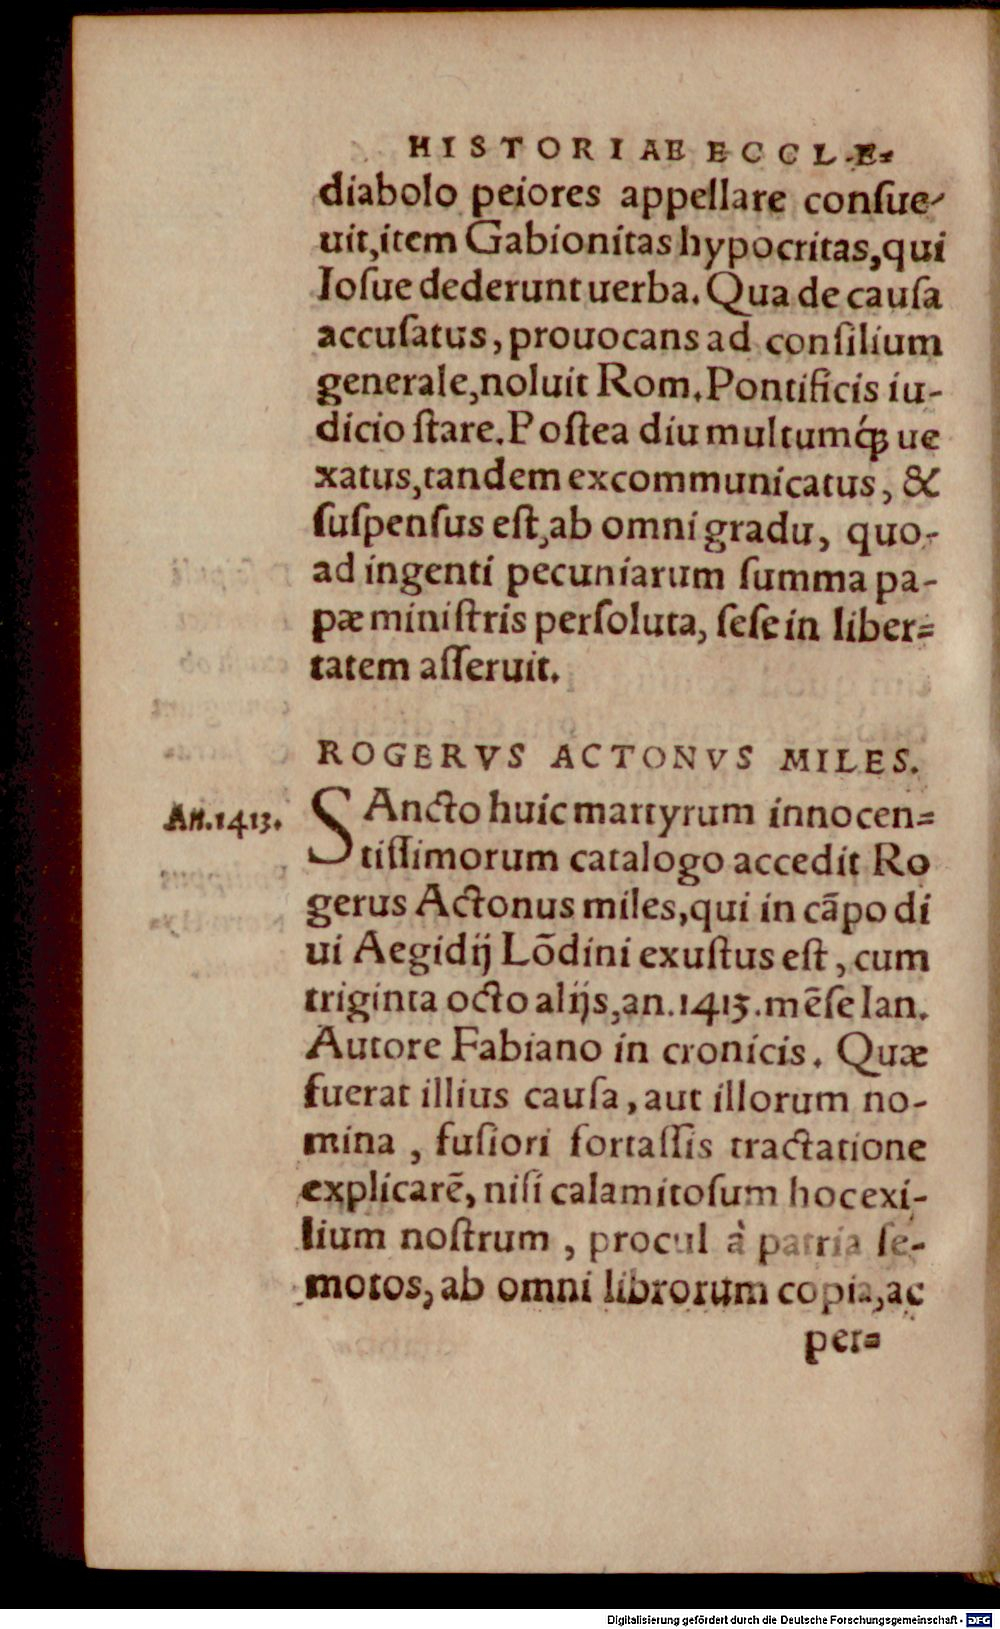 HISTORIAE ECCLE-
diabolo peiores appellare conſue-
uit,item Gabionitas hypocritas,qui
Ioſue dederunt uerba. Qua de cauſa
accuſatus, prouocans ad conſilium
generale,noluit Rom.Pontificis iu-
dicio ſtare.Poſtea diu multumq́; ue
xatus,tandem excommunicatus, &
ſuſpenſus eſt,ab omni gradu, quo-
ad ingenti pecuniarum ſumma pa-
pæ miniſtris perſoluta, ſeſe in liber-
tatem aſſeruit.
ROGERVS ACTONVS MILES.
An.1413. SAncto huic martyrum innocen-
tiſſimorum catalogo accedit Ro
gerus Actonus miles,qui in cāpo di
ui Aegidij Lōdini exuſtus eſt, cum
triginta octo alijs,an.1413.mēſe Ian.
Autore Fabiano in cronicis. Quæ
fuerat illius cauſa, aut illorum no-
mina , fuſiori fortaſſis tractatione
explicarē, niſi calamitoſum hoc exi-
lium noſtrum , procul à patria ſe-
motos, ab omni librorum copia,ac
per-
Digitalisierung gefördert durch die Deutsche Forschungsgemeinschaft - DFG